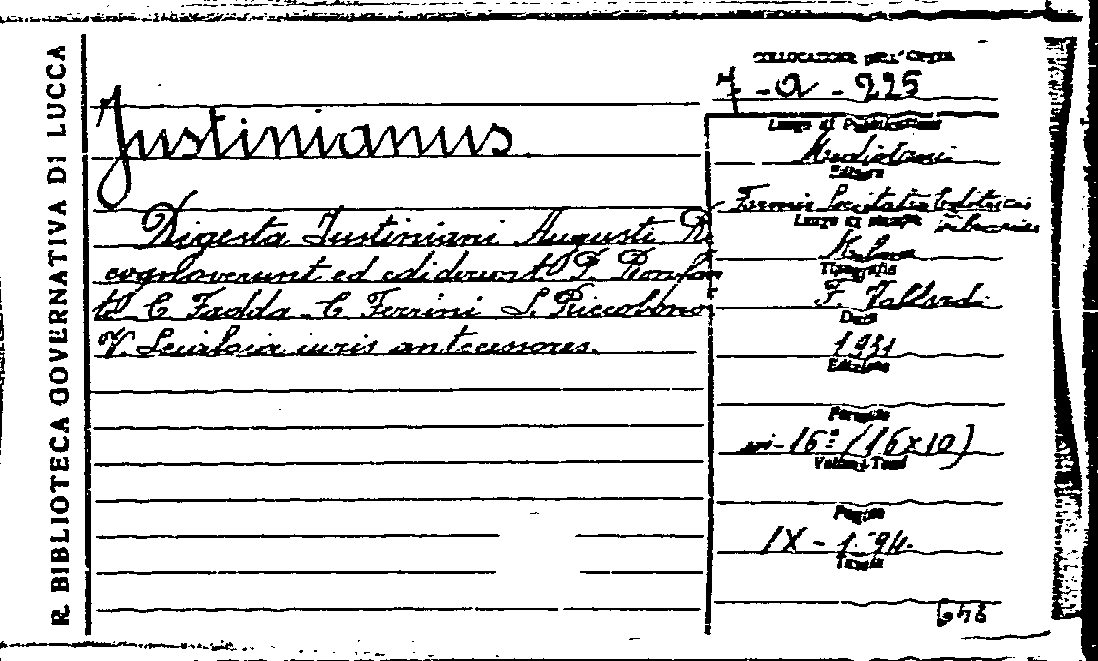 R. BIBLIOTECA GOVERNATIVA DI LUCCA
COLLOCAZIONE DELL'OPERA
7-a-225
Justinianus
Digesta Iustiniani Augusti Re
cognoverunt ed ediderunt P. Bonfan
te C. Fadda C. Ferrini S. Riccobono
V. Scialoia iuris antecessores.
Luogo di Pubblicazione
Mediolani
Editore
Formis Societatis Editricis
librariae
Luogo di stampa
Milano
Tipografia
F. Vallardi
Data
1931
Edizione
Formato
in-16º (16x10)
Volumi Tomi
Pagine
IX -
Tavole
646